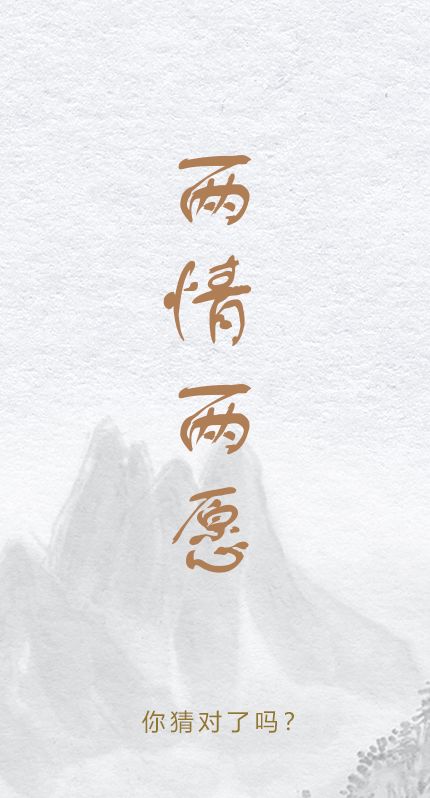 两情两愿
你猜对了吗?